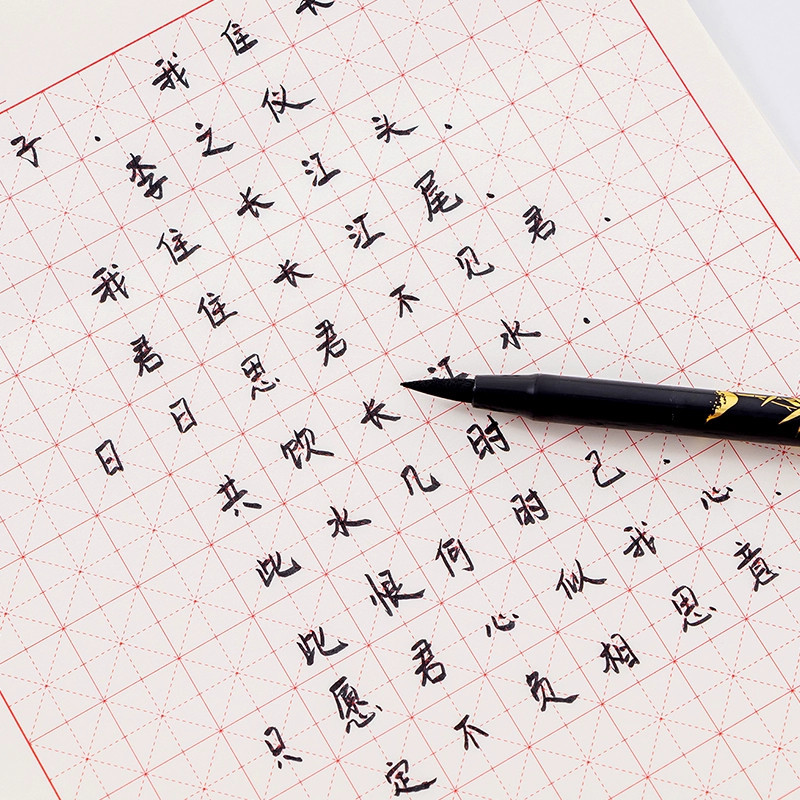 子·我住长
李之仪
我住长江头.
君住长江尾.
日日思君不见君.
共饮长江水.
此水几时
此恨何时己.
只愿君心似我心.
定不负相思意